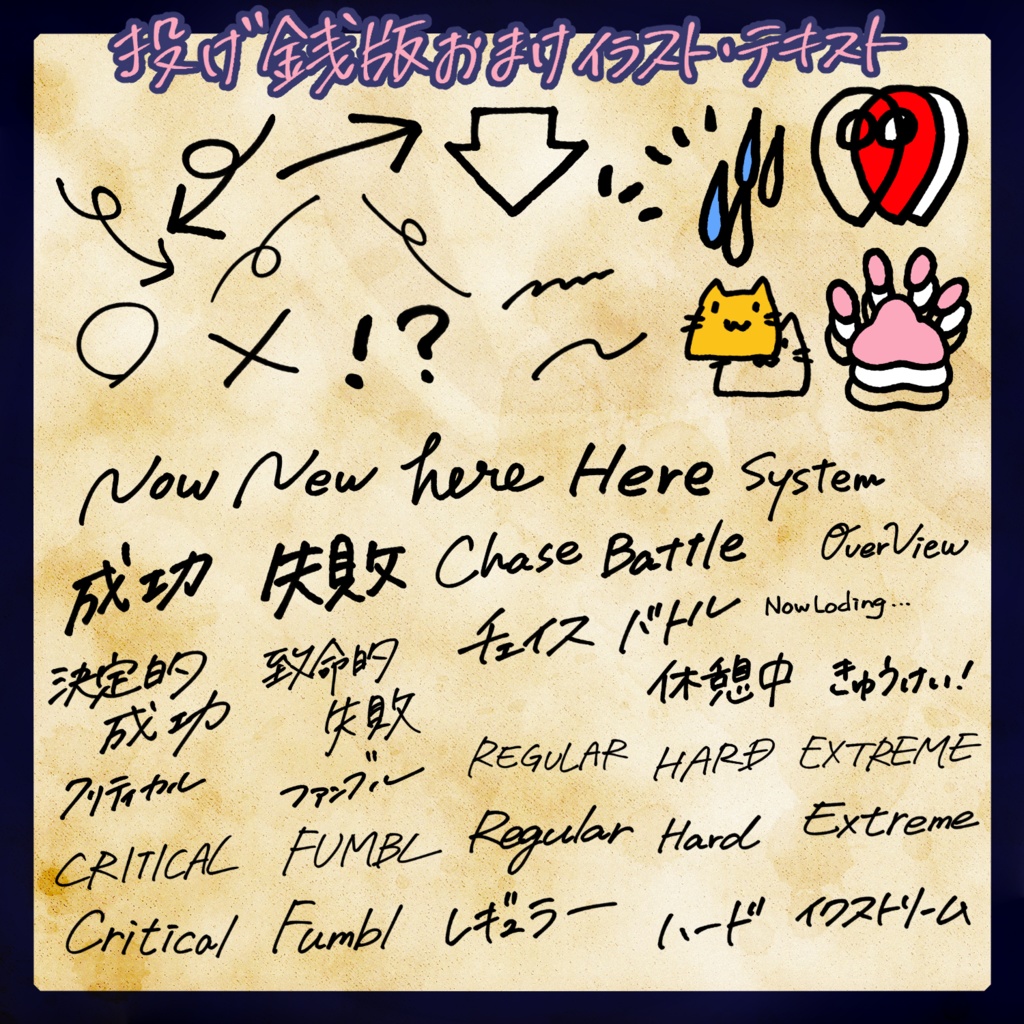 投げ銭版おまけイラスト・テキスト
!?
Now New here Here System
成功 失敗 Chase Battle OverView
チェイス バトル NowLoding...
決定的成功 致命的失敗 休憩中 きゅうけい!
クリティカル ファンブル REGULAR HARD EXTREME
CRITICAL FUMBL Regular Hard Extreme
Critical Fumbl レギュラー ハード イクストリーム